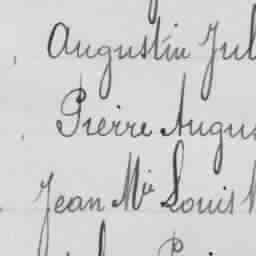 Augustin Jul
Pierre Augus
Jean Mie Louis